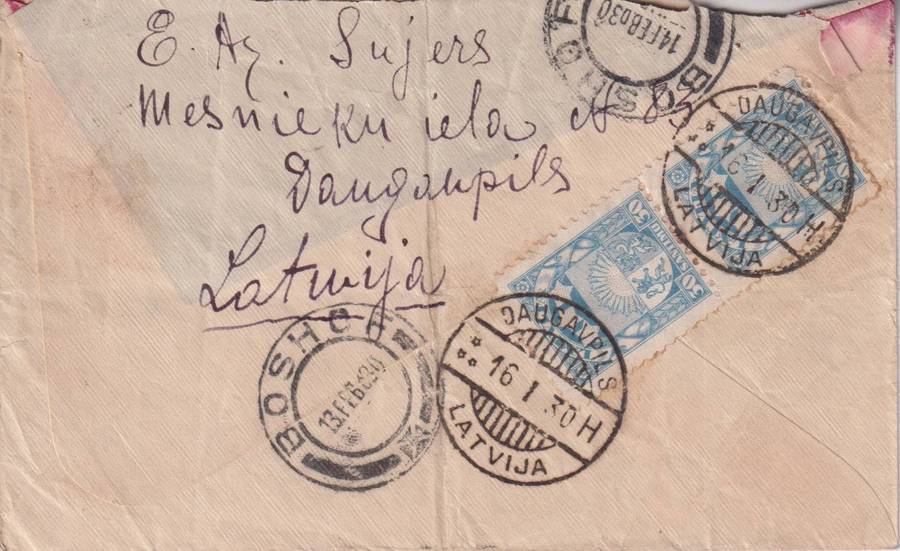 E. Az. Sujers
Mesnieku iela № 83
Daugavpils
Latvija
BOSHOF
14 FEB 30
DAUGAVPILS
16 I 30 H
LATVIJA
DAUGAVPILS
16 I 30 H
LATVIJA
BOSHOF
13 FEB 30